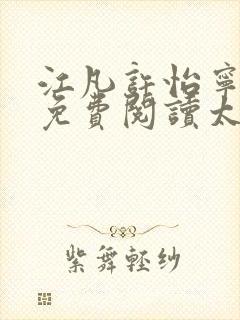 江凡許怡寧
免費閱讀太
紫舞輕紗